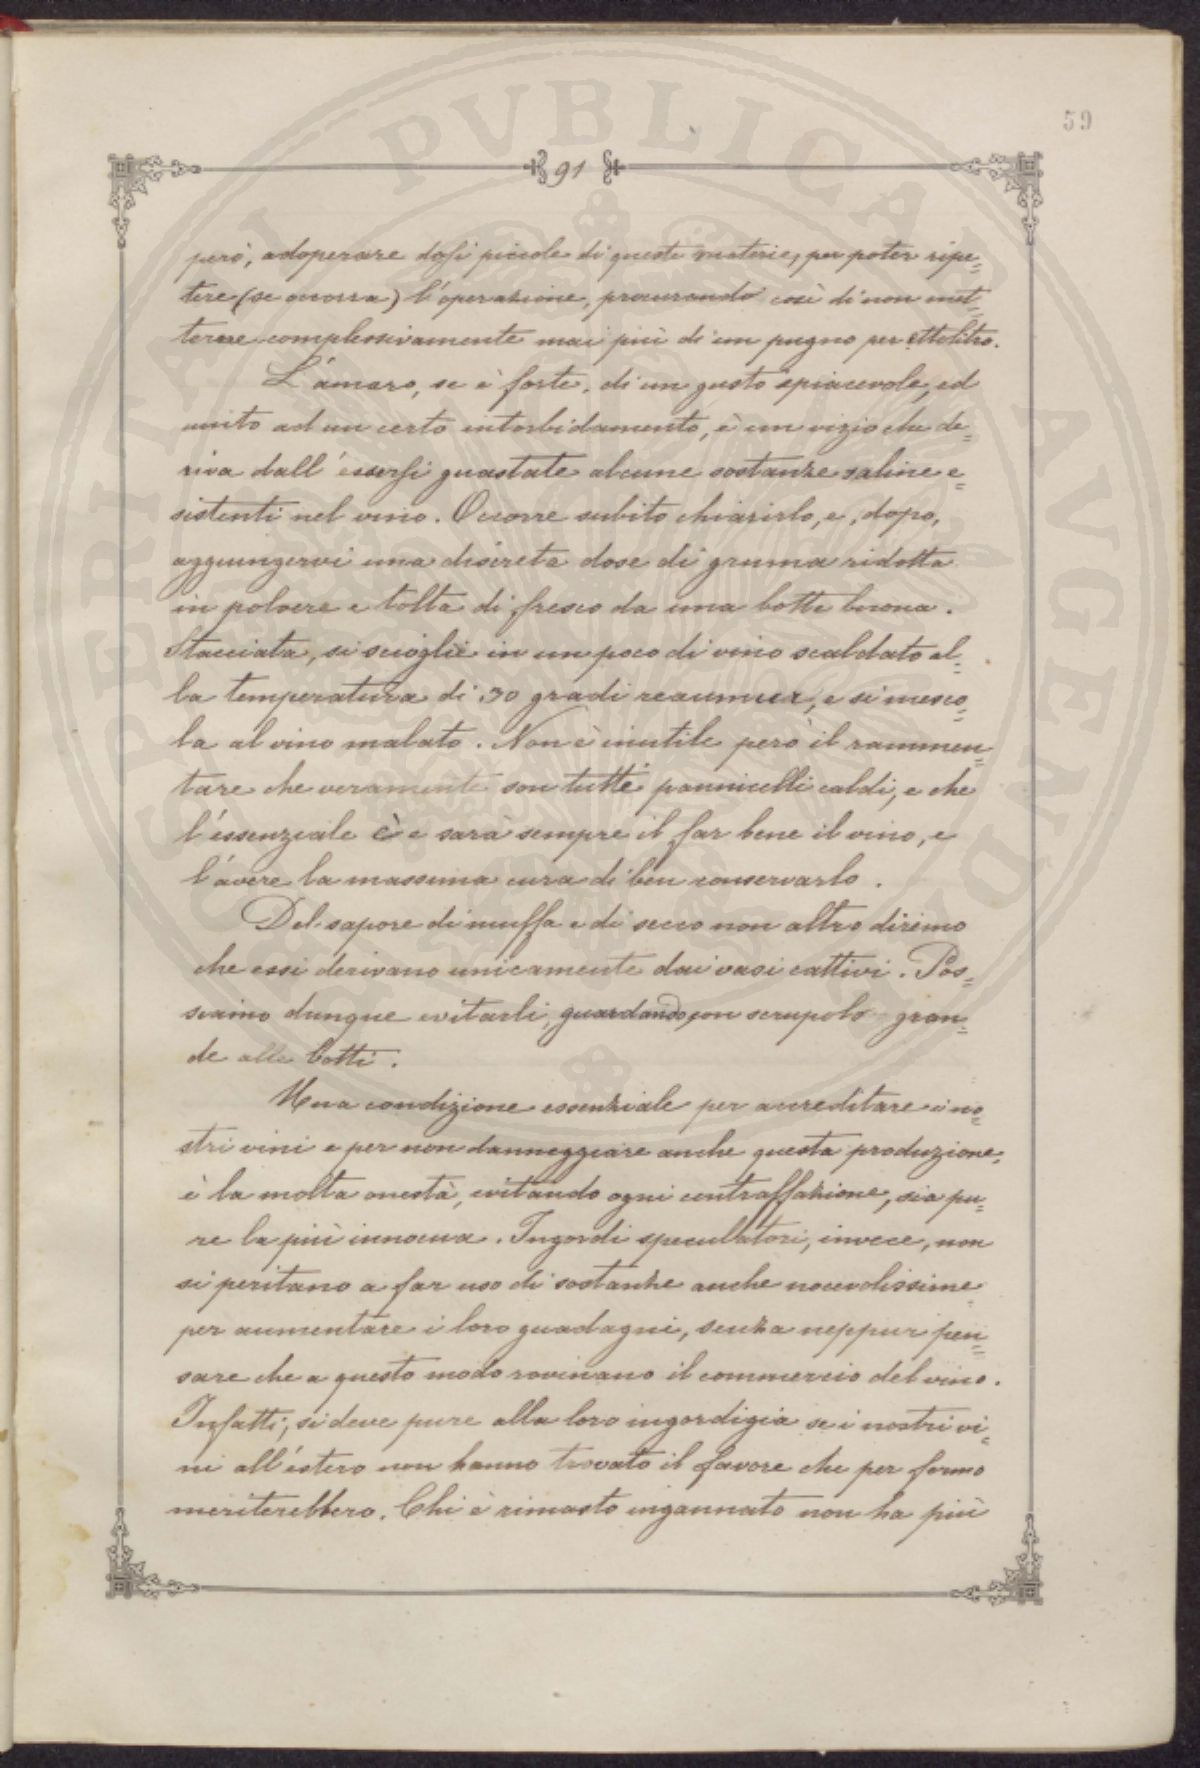 59
91
però, adoperare dosi piccole di queste materie, per poter ripe=
tere (se occorra) l'operazione, procurando così di non met=
terne complessivamente mai più di un pugno per ettolitro.
L'amaro, se è forte, di un gusto spiacevole, ed
unito ad un certo intorbidamento, è un vizio che de=
riva dall'essersi guastate alcune sostanze saline e=
sistenti nel vino. Occorre subito chiarirlo, e, dopo,
aggiungervi una discreta dose di gruma ridotta
in polvere e tolta di fresco da una botte buona.
Stacciata, si scioglie in un poco di vino scaldato al=
la temperatura di 30 gradi reaumur, e si mesco=
la al vino malato. Non è inutile però il rammen=
tare che veramente son tutte pannicelli caldi, e che
l'essenziale è e sarà sempre il far bene il vino, e
l'avere la massima cura di ben conservarlo.
Del sapore di muffa e di secco non altro diremo
che essi derivano unicamente dai vasi cattivi. Pos=
siamo dunque evitarli, guardando con scrupolo gran=
de alle botti.
Una condizione essenziale per accreditare i no=
stri vini e per non danneggiare anche questa produzione,
è la molta onestà, evitando ogni contraffazione, sia pu=
re la più innocua. Ingordi speculatori, invece, non
si peritano a far uso di sostanze anche nocevolissime
per aumentare i loro guadagni, senza neppur pen=
sare che a questo modo rovinano il commercio del vino.
Infatti, si deve pure alla loro ingordigia se i nostri vi=
ni all'estero non hanno trovato il favore che per fermo
meriterebbero. Chi è rimasto ingannato non ha più